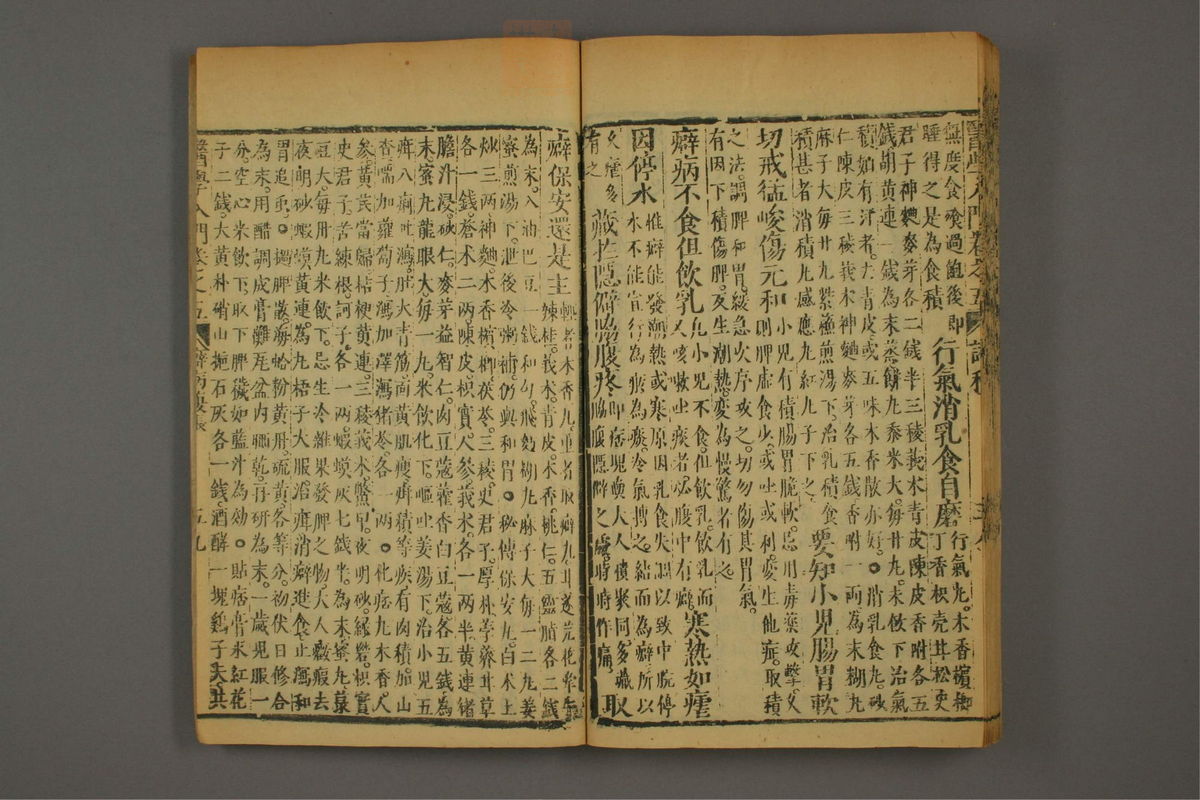 無度食喫過飽後即
睡得之是為食積
行氣消乳食自磨
行氣丸木香檳榔
丁香枳壳甘松史
君子神麯麥芽各二錢半三稜莪朮青皮陳皮香附各五
錢胡黃連一錢為末蒸餅丸黍米大每廿丸米飲下治氣
積如有汗者去青皮或五味木香散亦好。消乳食丸砂
仁陳皮三稜莪朮神麯麥芽各五錢香附一兩為末糊丸
麻子大每廿丸紫蘇煎湯下治乳積食
積甚者消積丸感應丸紅丸子下之
要知小兒腸胃軟
切戒猛峻傷元和
小兒有積腸胃脆軟忌用毒藥攻擊又
則脾虛食少或吐或利變生他症取積
之法調脾和胃緩急次序攻之切勿傷其胃氣
有因下積傷脾及生潮熱變為慢驚者有之
癖病不食但飲乳
凡小兒不食但飲乳飲乳而
又咳嗽吐痰者必腹中有癖
寒熱如瘧
因停水
惟癖能發潮熱或寒原因乳食失調以致中脘停
水不能宣行為痰為痰冷氣搏之結而為癖所以
又瘧多
有之
藏在隱僻脇腹疼
即痞塊與大人積聚同多藏
脇腹隱僻之處時時作痛
取
癖保安還是主
輕者木香丸重者取癖丸甘遂芫花牽牛
辣桂莪朮青皮木香桃仁五靈脂各二錢
為末入油巴豆一錢和勻飛麪糊丸麻子大每一二丸姜
蜜煎湯下泄後冷粥補仍與和胃。秘傳保安丸白朮土
炒三兩神麯木香檳榔茯苓三稜史君子厚朴葶藶甘草
各一錢蒼朮二兩陳皮枳實人參莪朮各一兩半黃連猪
膽汁浸砂仁麥芽益智仁肉豆蔻藿香白豆蔻各五錢為
末蜜丸龍眼大每一丸米飲化下嘔吐姜湯下治小兒五
疳八痢吐瀉肚大青筋面黃肌瘦疳積等疾有肉積加山
查喘加蘿蔔子瀉加澤瀉猪苓各一兩。化痞丸木香人
參黃芪當歸桔梗黃連三稜莪朮鱉甲夜明砂綠礬枳實
史君子苦練根訶子各一兩蝦蟆灰七錢半為末蜜丸菉
豆大每卅丸米飲下忌生冷雜果發脾之物大人癥瘕去
夜明砂蝦蟆黃連為丸梧子大服治疳消癖進食止瀉和
胃追虫。攧脾散海蛤粉黃丹硫黃各等分初伏日修合
為末用醋調成膏攤瓦盆內晒乾再研為末一歲兒服一
分空心米飲下取下脾穢如藍汁為効。貼痞膏水紅花
子二錢大黃朴硝山梔石灰各一錢酒酵一塊雞子大共
醫學入門卷之五
五九